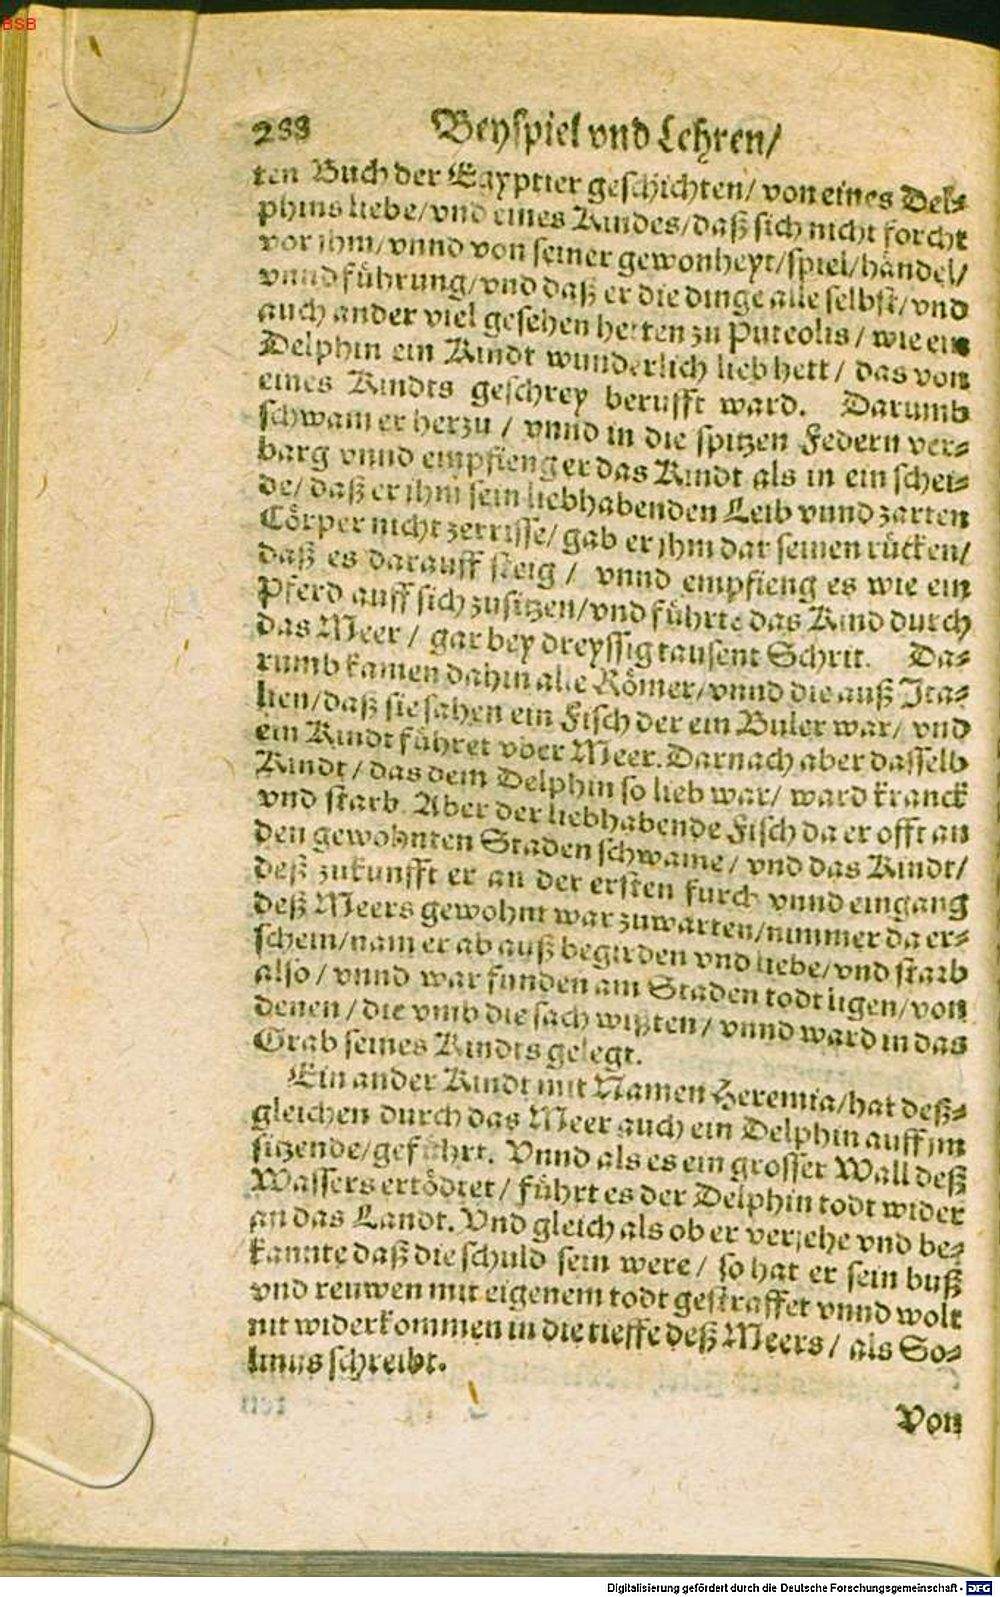 BSB
288 Beyspiel vnd Lehren/
ten Buch der Egyptier geschichten/ von eines Del-
phins liebe/vnd eines Kindes/daß sich nicht forcht
vor ihm/vnnd von seiner gewonheyt/spiel/händel/
vnnd führung/vnd daß er die dinge alle selbst/vnd
auch ander viel gesehen hetten zu Puteolis/ wie ein
Delphin ein Kindt wunderlich lieb hett/ das von
eines Kindts geschrey berufft ward. Darumb
schwam er herzu / vnnd in die spitzen Federn ver-
barg vnnd empfieng er das Kindt als in ein schei-
de/ daß er ihm sein liebhabenden Leib vnnd zarten
Cörper nicht zerrisse/ gab er ihm dar seinen rücken/
daß es darauff steig / vnnd empfieng es wie ein
Pferd auff sich zusitzen/vnd führte das Kind durch
das Meer / gar bey dreyssig tausent Schrit. Da-
rumb kamen dahin alle Römer/vnnd die auß Jta-
lien/daß sie sahen ein Fisch der ein Buler war/ vnd
ein Kindt führet vber Meer. Darnach aber dasselb
Kindt/ das dem Delphin so lieb war/ ward kranck
vnd starb. Aber der liebhabende Fisch da er offt an
den gewohnten Staden schwame/ vnd das Kindt/
deß zukunfft er an der ersten furch vnnd eingang
deß Meers gewohnt war zuwarten/nimmer da er-
schein/nam er ab auß begirden vnd liebe/vnd starb
also/ vnnd war funden am Staden todt ligen/von
denen/ die vmb die sach wißten/ vnnd ward in das
Grab seines Kindts gelegt.
Ein ander Kindt mit Namen Heremia/hat deß-
gleichen durch das Meer auch ein Delphin auff jm
sitzende/geführt. Vnnd als es ein grosser Wall deß
Wassers ertödtet/ führt es der Delphin todt wider
an das Landt. Vnd gleich als ob er verjehe vnd be-
kannte daß die schuld sein were/ so hat er sein buß
vnd reuwen mit eigenem todt gestraffet vnnd wolt
nit widerkommen in die tieffe deß Meers/ als So-
linus schreibt.
Von
Digitalisierung gefördert durch die Deutsche Forschungsgemeinschaft - DFG